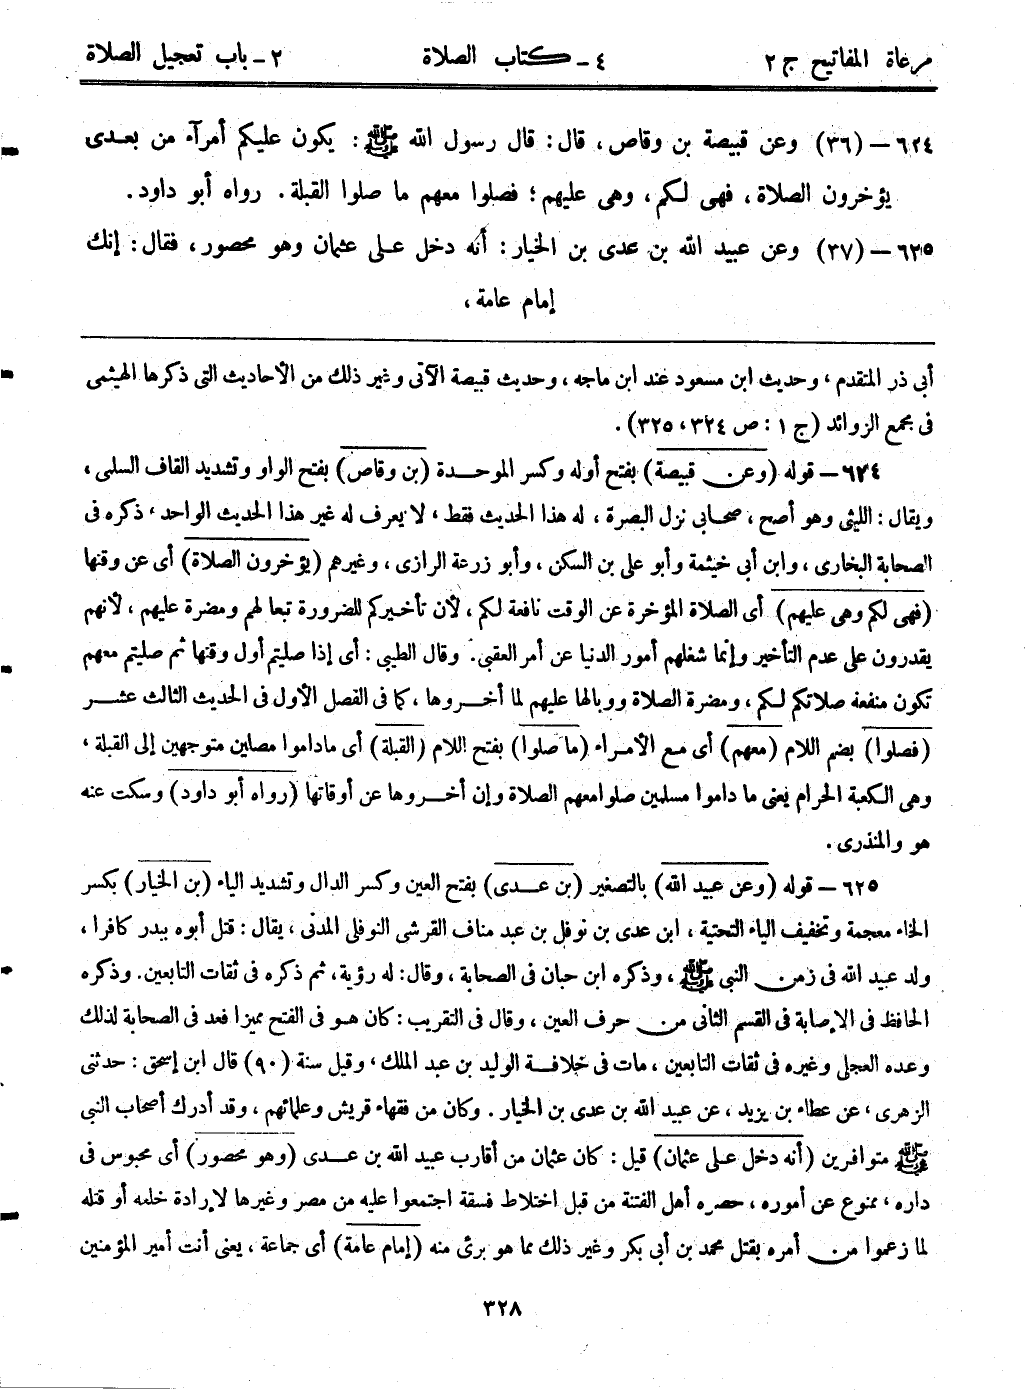 مرعاة المفاتيح ج ٢ ٤ ـ كتاب الصلاة ٢ ـ باب تعجيل الصلاة
٦٢٤ – (٣٦) وعن قبيصة بن وقاص، قال: قال رسول الله ﷺ: يكون عليكم أمرآء من بعدى
يؤخرون الصلاة، فهى لكم، وهى عليهم؛ فصلوا معهم ما صلوا القبلة. رواه أبو داود.
٦٢٥ – (٣٧) وعن عبيد الله بن عدى بن الخيار: أنه دخل على عثمان وهو محصور، فقال: إنك
إمام عامة،
أبى ذر المتقدم، وحديث ابن مسعود عند ابن ماجه، وحديث قبيصة الآتى وغير ذلك من الأحاديث التى ذكرها الهيثمى
فى مجمع الزوائد (ج ١ : ص ٣٢٤، ٣٢٥).
٦٢٤ – قوله (وعن قبيصة) بفتح أوله وكسر الموحدة (بن وقاص) بفتح الواو وتشديد القاف السلمى،
ويقال: الليثى وهو أصح، صحابى نزل البصرة، له هذا الحديث فقط، لا يعرف له غير هذا الحديث الواحد، ذكره فى
الصحابة البخارى، وابن أبى خيثمة وأبو على بن السكن، وأبو زرعة الرازى، وغيرهم (يؤخرون الصلاة) أى عن وقتها
(فهى لكم وهى عليهم) أى الصلاة المؤخرة عن الوقت نافعة لكم، لأن تأخيركم للضرورة تبعا لهم ومضرة عليهم، لأنهم
يقدرون على عدم التأخير وإنما شغلهم أمور الدنيا عن أمر العقبى. وقال الطيبى: أى إذا صليتم أول وقتها ثم صليتم معهم
تكون منفعة صلاتكم لكم، ومضرة الصلاة ووبالها عليهم لما أخروها، كما فى الفصل الأول فى الحديث الثالث عشر
(فصلوا) بضم اللام (معهم) أى مع الأمراء (ما صلوا) بفتح اللام (القبلة) أى ماداموا مصلين متوجهين إلى القبلة،
وهى الكعبة الحرام يعنى ما داموا مسلمين صلوا معهم الصلاة وإن أخروها عن أوقاتها (رواه أبو داود) وسكت عنه
هو والمنذرى.
٦٢٥ – قوله (وعن عبيد الله) بالتصغير (بن عدى) بفتح العين وكسر الدال وتشديد الياء (بن الخيار) بكسر
الخاء معجمة وتخفيف الياء التحتية، ابن عدى بن نوفل بن عبد مناف القرشى النوفلى المدنى، يقال: قتل أبوه ببدر كافرا،
ولد عبيد الله فى زمن النبى ﷺ، وذكره ابن حبان فى الصحابة، وقال: له رؤية، ثم ذكره فى ثقات التابعين. وذكره
الحافظ فى الإصابة فى القسم الثانى من حرف العين، وقال فى التقريب: كان هو فى الفتح مميزا فعد فى الصحابة لذلك
وعده العجلى وغيره فى ثقات التابعين، مات فى خلافة الوليد بن عبد الملك، وقيل سنة (٩٠) قال ابن إسحق: حدثنى
الزهرى، عن عطاء بن يزيد، عن عبيد الله بن عدى بن الخيار. وكان من فقهاء قريش وعلمائهم، وقد أدرك أصحاب النبى
ﷺ متوافرين (أنه دخل على عثمان) قيل: كان عثمان من أقارب عبيد الله بن عدى (وهو محصور) أى محبوس فى
داره، ممنوع عن أموره، حصره أهل الفتنة من قبل اختلاط فسقة اجتمعوا عليه من مصر وغيرها لإرادة خلعه أو قتله
لما زعموا من أمره بقتل محمد بن أبى بكر وغير ذلك مما هو برئ منه (إمام عامة) أى جماعة، يعنى أنت أمير المؤمنين
٣٢٨